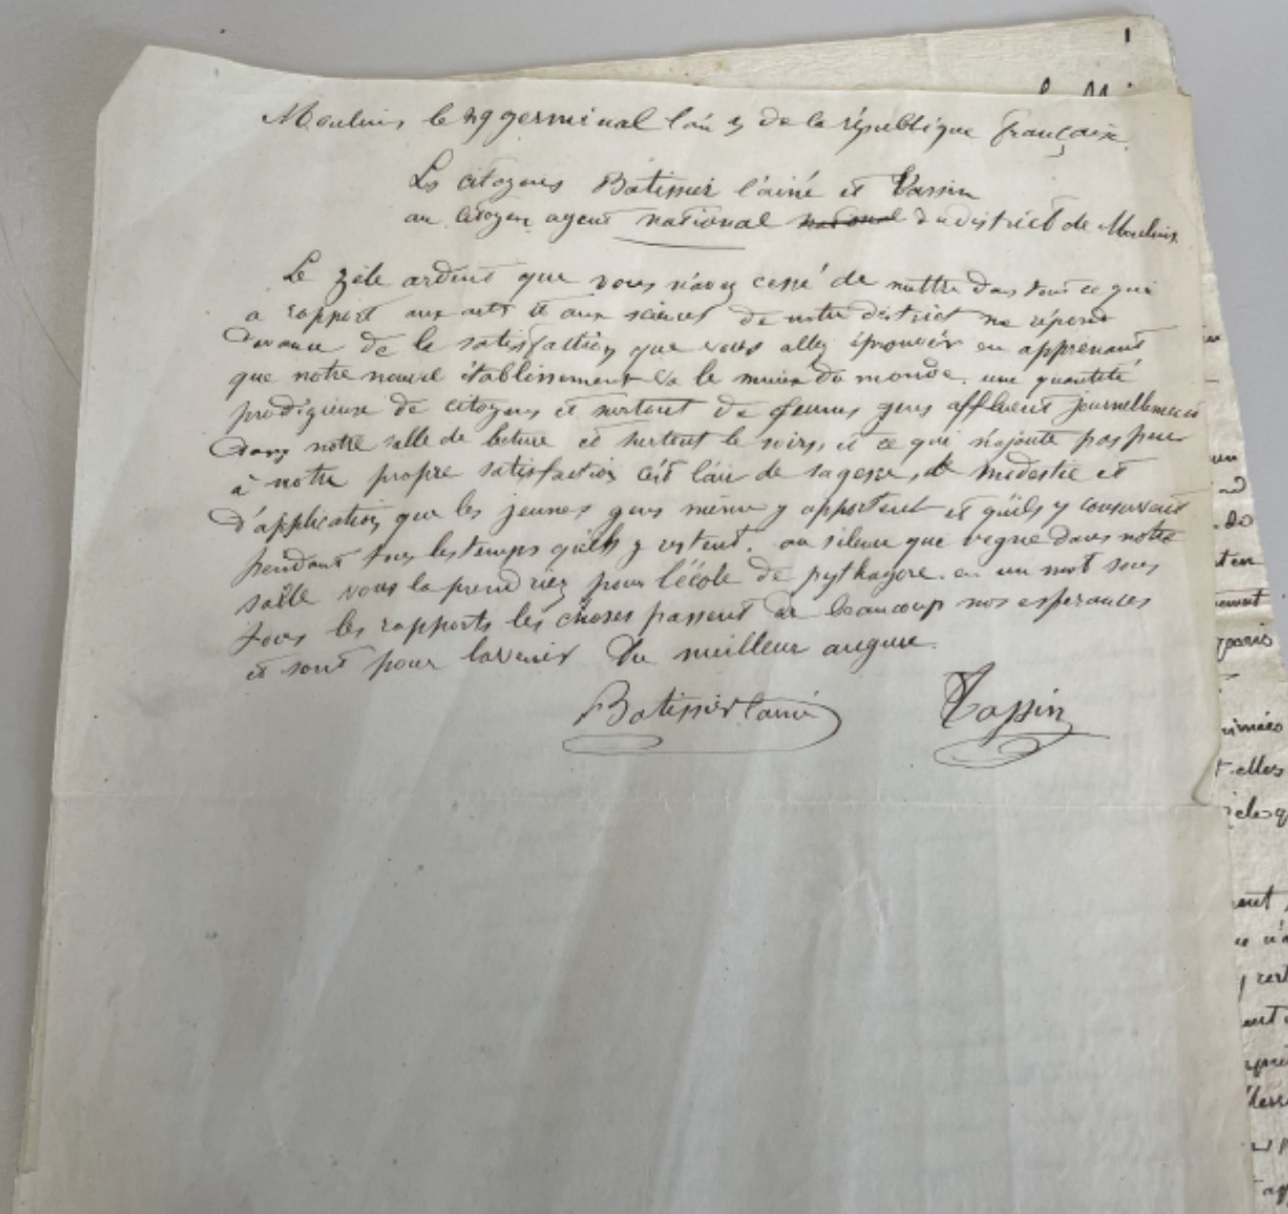 Moulins, le 29 germinal l'an 3 de la république française.
Les citoyens Batissier l'ainé et Tassin
au citoyen agent national national du district de Moulins
Le zéle ardent que vous n'avez cessé de mettre dans tout ce qui
a rapport aux arts et aux sciences de notre district me répond
d'avance de la satisfaction que vous allez éprouver en apprenant
que notre nouvel établissement va le mieux du monde. une quantité
prodigieuse de citoyens et surtout de jeunes gens affluent journellement
dans notre salle de lecture et surtout le soirs, et ce qui n'ajoute pas peu
à notre propre satisfaction c'est l'air de sagesse, de modestie et
d'application que les jeunes gens même y apportent et qu'ils y conservent
pendant tous les temps qu'ils y restent. au silence que regne dans notre
salle vous la prendriez pour l'école de pythagore. en un mot sous
tous les rapports les choses passent de beaucoup nos esperances
et sont pour l'avenir du meilleur augure.
Batissier l'ainé Tassin
1